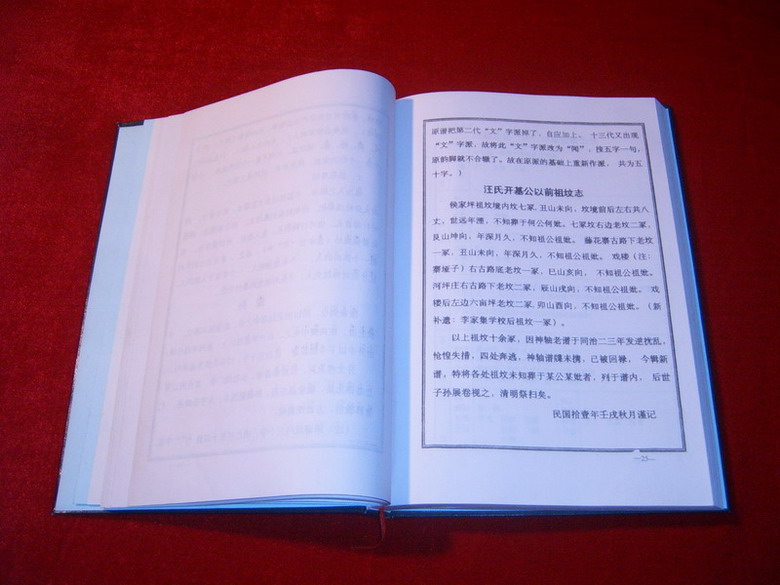 原谱把第二代“文”字派掉了，自应加上。 十三代又出现
“文”字派，故将此“文”字派改为“闻”，按五字一句，
原韵脚就不合辙了。故在原派的基础上重新作派， 共为五
十字。）
汪氏开基公以前祖坟志
候家坪祖坟境内坟七冢，丑山未向，坟境前后左右共八
丈，世远年湮，不知葬于何公何妣。七冢坟右边老坟二冢，
艮山坤向，年深月久，不知祖公祖妣。 藤花寨古路下老坟
一冢，丑山未向，年深月久，不知祖公祖妣。 戏楼（注：
寨垭子）右古路底老坟一冢，巳山亥向， 不知祖公祖妣。
河坪庄右古路下老坟二冢，辰山戌向，不知祖公祖妣。 戏
楼后左边六亩坪老坟二冢，卯山酉向，不知祖公祖妣。（新
补遗：李家集学校后祖坟一冢）。
以上祖坟十余冢，因神轴老谱于同治二三年发逆扰乱，
怆惶失措，四处奔逃，神轴谱牒未携，已被回禄， 今辑新
谱，特将各处祖坟未知葬于某公某妣者，列于谱内， 后世
子孙展卷视之，清明祭扫矣。
民国拾壹年壬戌秋月谨记
—25—